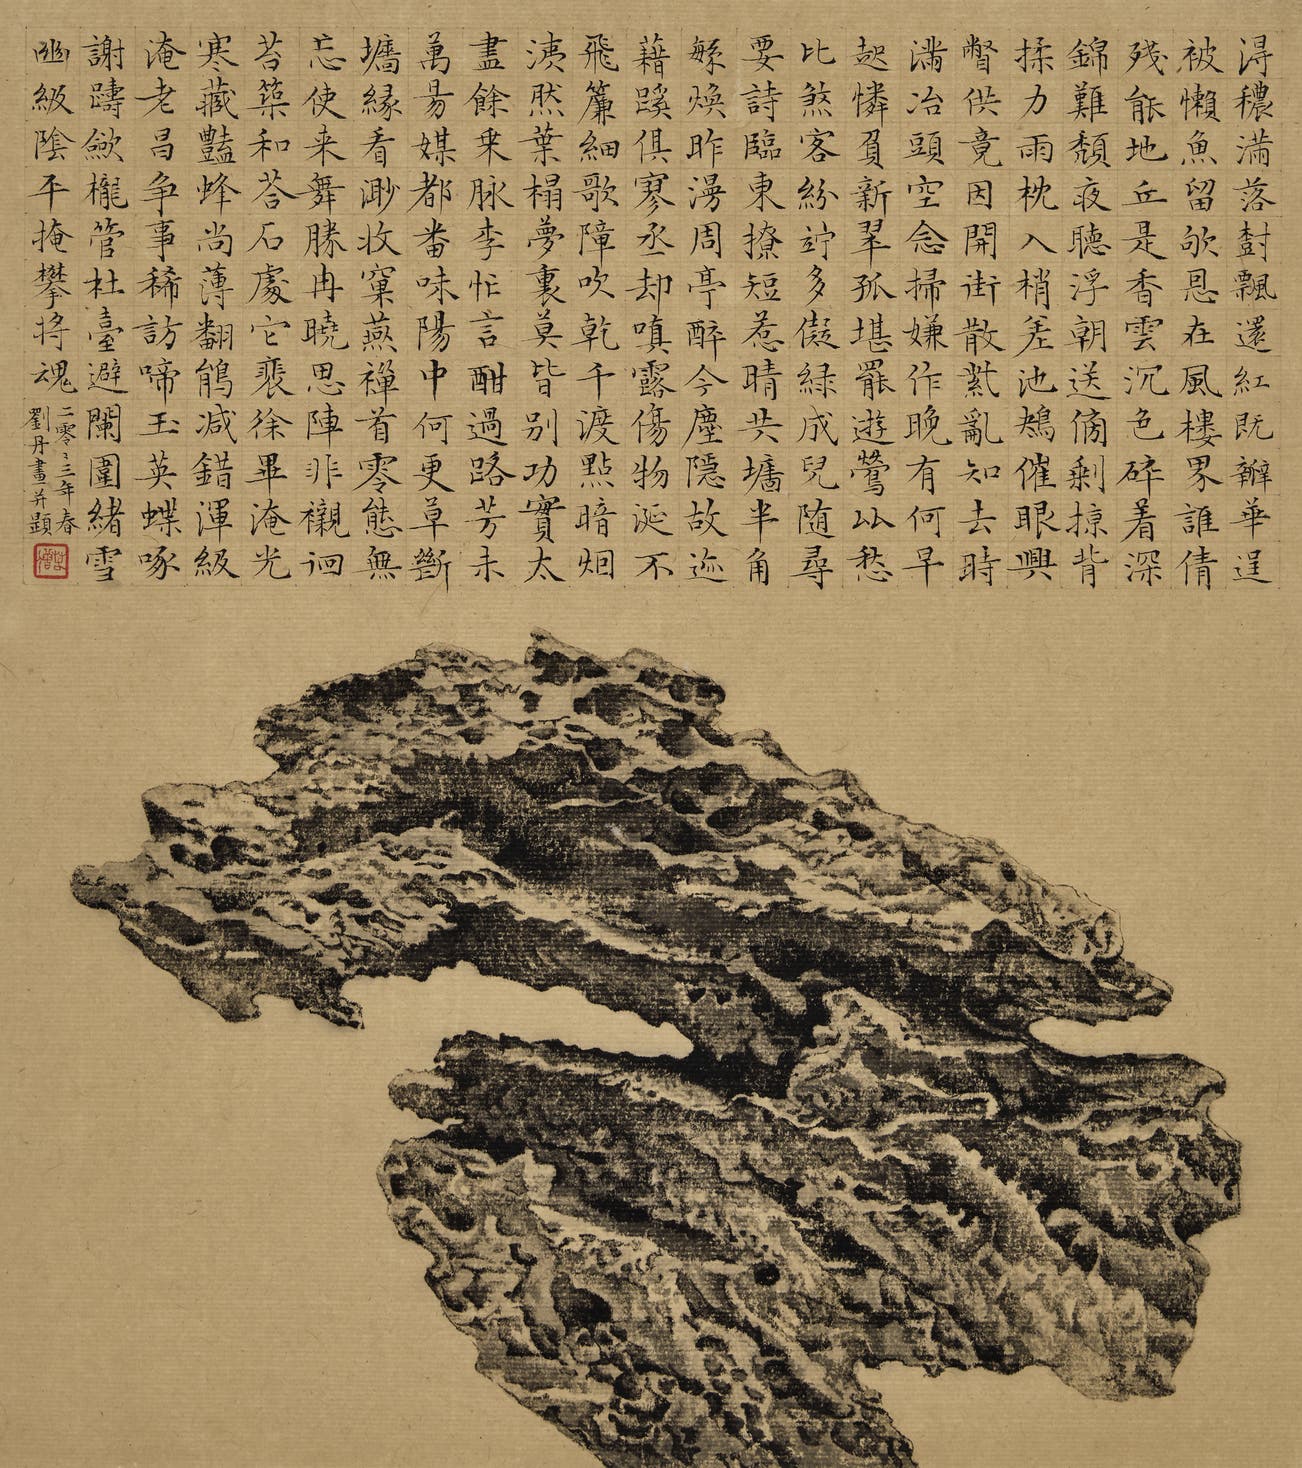 淂穠滿落尌飄還紅既辦華逞
被懶魚留欨恩在風樓界誰倩
殘能地丘是香雲沉色碎着深
錦難頹夜聽浮朝送俻剩掠背
揉力雨枕入梢差池鴂催眼興
瞥供竟因開街散紫亂知去時
滿冶頭空念掃嫌作晚有何早
起憐負新翠孤堪罷遊鶯此愁
比煞客紛竚多儗綠成兒随尋
要詩臨東撩短惹晴共墻半角
蘇煥昨漫周亭醉今塵隱故迹
藉蹊俱寥丞却嗔露傷物涎不
飛簾細歌障吹乾千渡點暗烟
洟然葉榻夢裏莫皆別功實太
盡餘乗脉李忙言酣過路芳未
萬昜媒都畨味陽中何更草斷
墻緣看渺收窠燕禪首零態無
忘使来舞勝冉曉思陣非襯洄
苔築和荅石處它裴徐畢淹光
寒藏豔蜂尚薄翻鶬減錯渾級
淹老昌争事稀訪啼玉英蝶啄
謝躊歛櫳管杜臺避闌圍緒雪
幽級陰平掩攀将魂
二零二三年春
劉丹畫并題